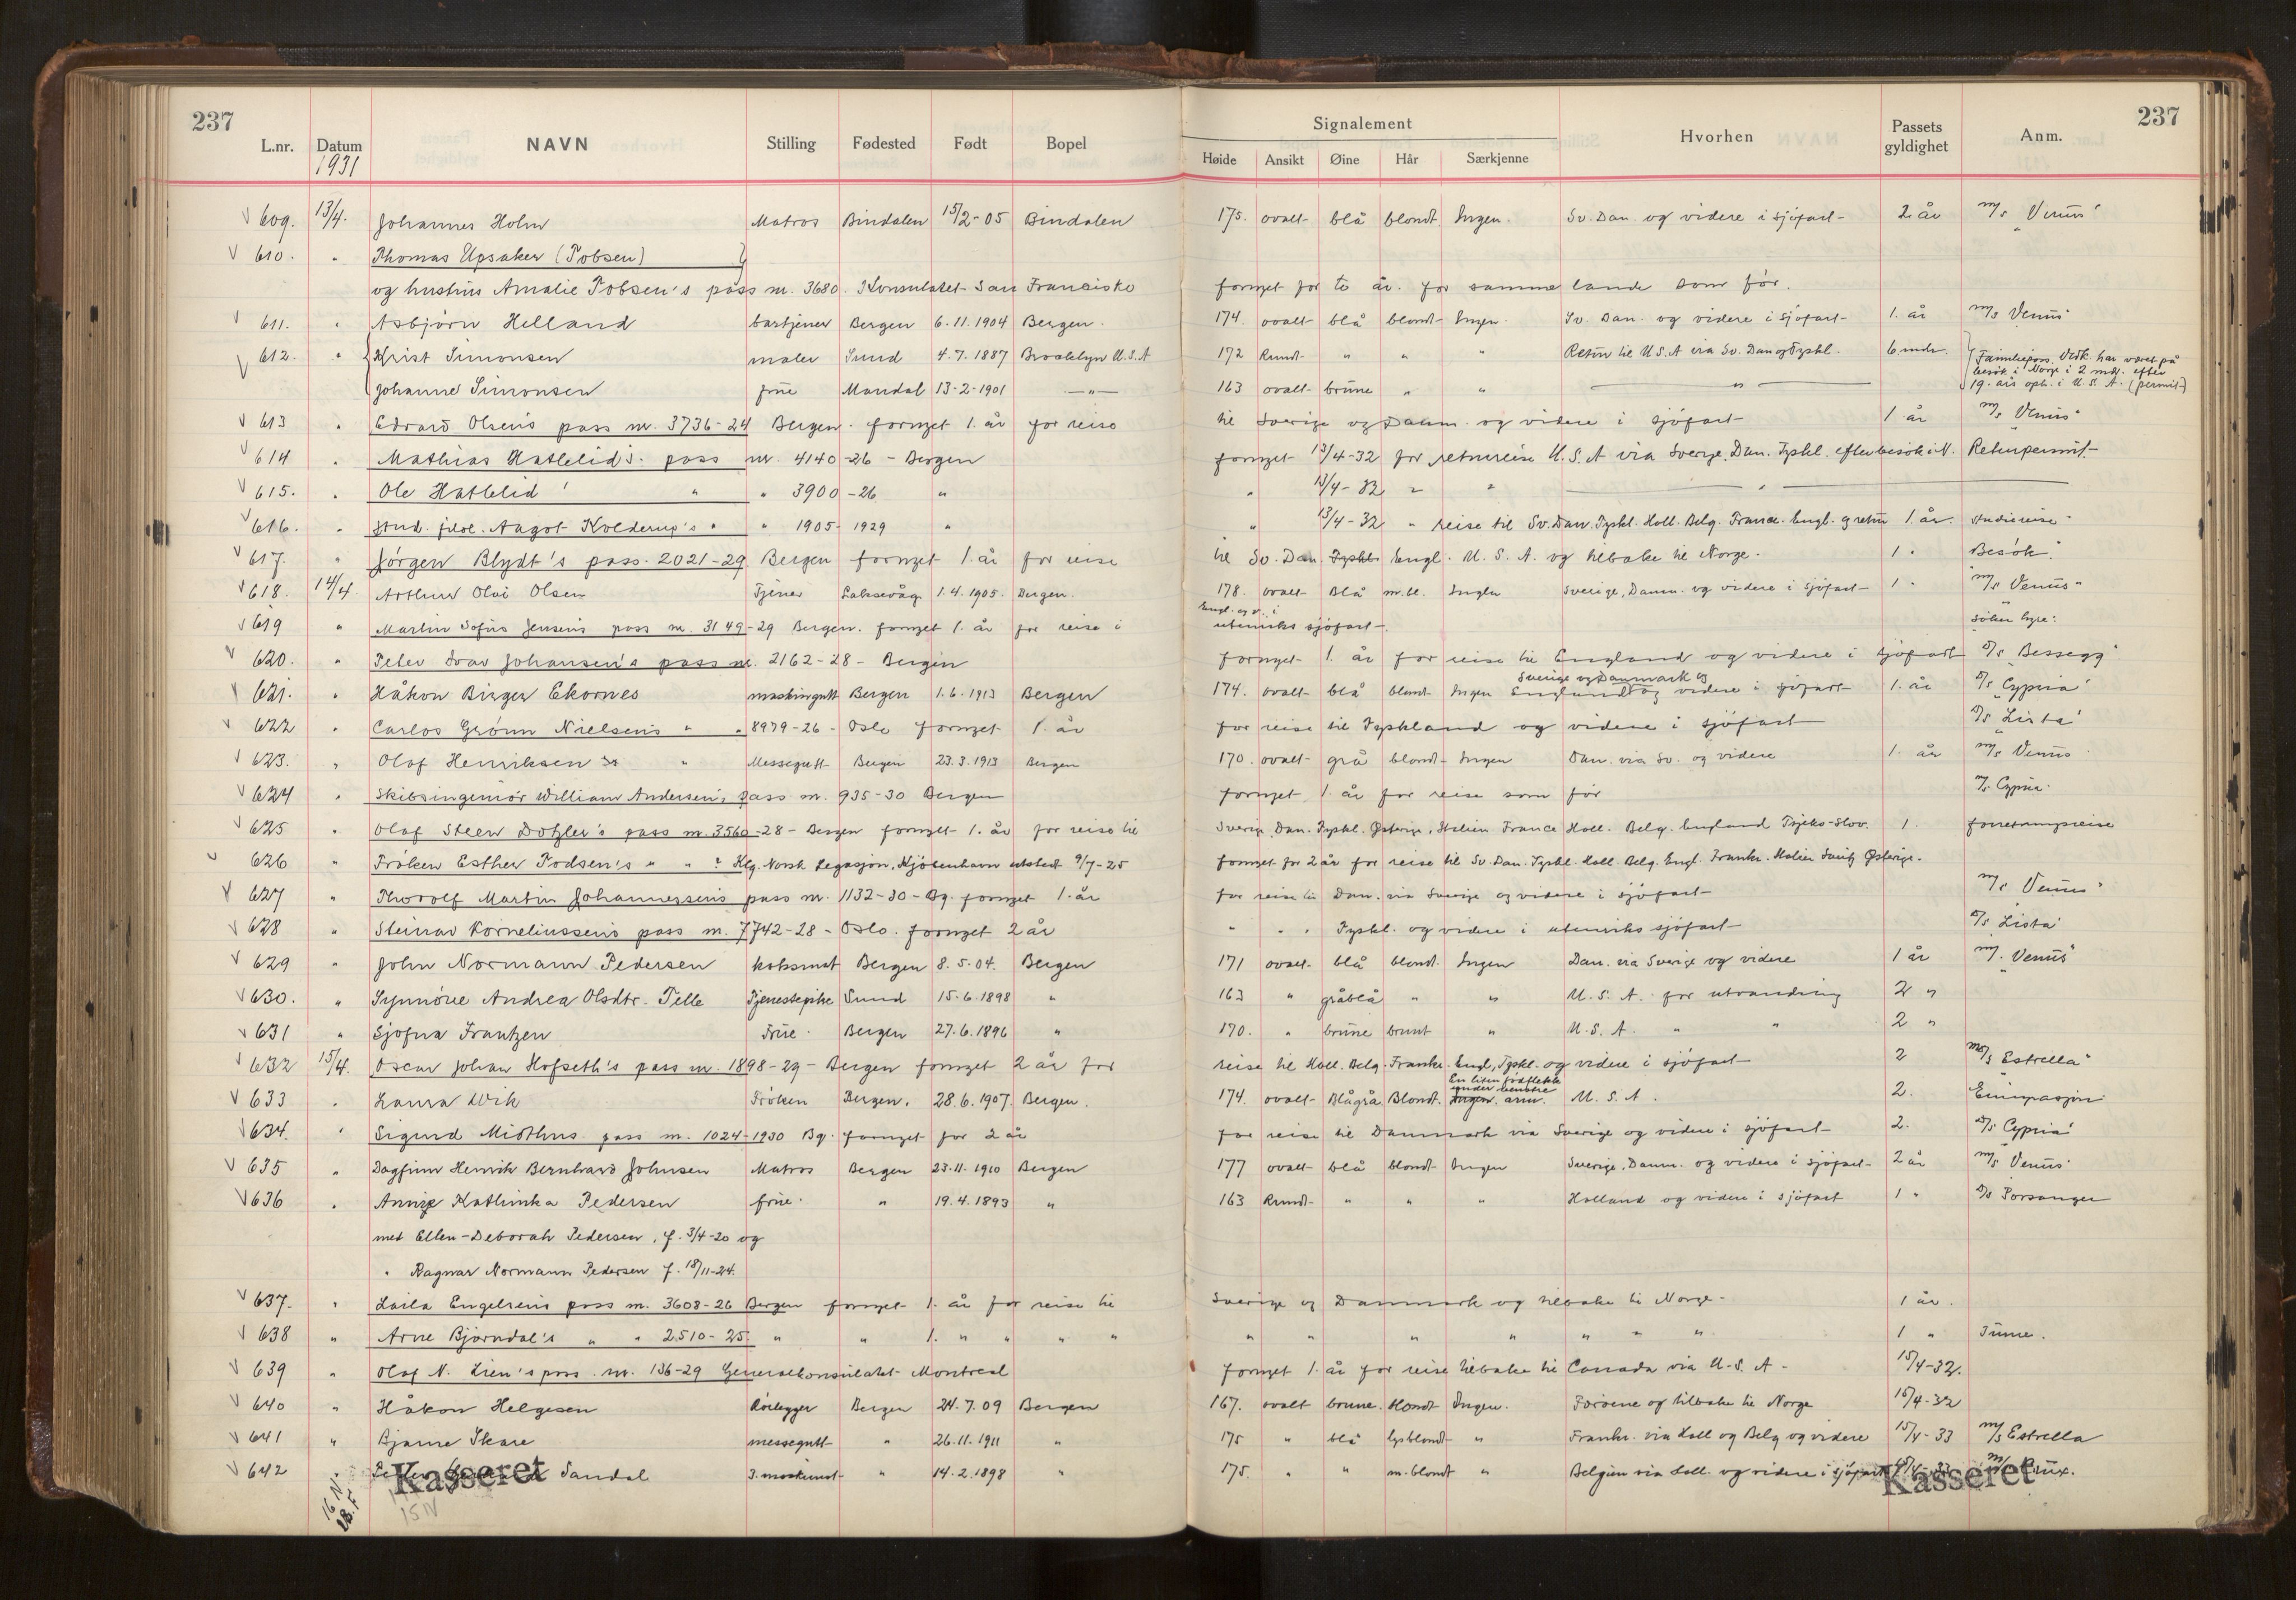 237 237
L.nr. Datum NAVN Stilling Fødested Født Bopel Signalement Hvorhen Passets gyldighet Anm.
Høide Ansikt Øine Hår Særkjenne
1931
609. 13/4. Johannes Holm Matros Bindalen 15/2-05 Bindalen 175. ovalt blå blondt Ingen. Sv. Dan. og videre i sjöfart 2 år m/s "Venus"
610. " Thomas Upsaker (Tobsen)
og hustru Amalie Tobsen's pass nr. 3680. Konsulatet San Francisko fornyet for to år. for samme lande som för.
611. " Asbjörn Helland bartjener Bergen 6.11.1904 Bergen. 174. ovalt blå blondt Ingen. Sv. Dan. og videre i sjöfart 1. år m/s Venus
612. " Krist Simonsen maler Sund 4.7.1887 Brooklyn U.S.A 172 Rundt " " " Retur til U.S.A via Sv. Dan og Tyskl. 6 mdr. Familiepass. Vedk. har været på besök i Norge i 2 mdr. efter
Johanne Simonsen frue Mandal 13-2-1901 — " — 163 ovalt brune " " — " — 19. års oph. i U.S.A. (permit)
613 " Edvard Olsens pass nr. 3736-24 Bergen. fornyet 1. år for reise til Sverige og Danm. og videre i sjöfart 1 år m/s Venus"
614 " Mathias Hatlelid's. pass nr. 4140-26 - Bergen fornyet 13/4-32 for returreise U.S.A via Sverige. Dan. Tyskl. efter besök i N. Returpermit
615. " Ole Hatlelid ' " " 3900-26 " " 13/4-32 " " — " —
616. " stud. filol. Aagot Kolderup's " " 1905-1929 " " 13/4-32 " reise til Sv. Dan. Tyskl. Holl. Belg. France. Engl. og retur 1. år. studiereise
617. " Jörgen Blydt's pass. 2021-29 Bergen fornyet 1. år for reise til Sv. Dan. Tyskl. Engl. U.S.A. og tilbake til Norge. 1 " Besök.
618. 14/4. Arthur Olai Olsen Tjener Laksevåg 1.4.1905. Bergen. 178. ovalt Blå m.bl. Ingen Sverige, Danm. og videre i sjöfart 1 " m/s Venus"
619 " Martin Sofus Jensens pass nr. 3149-29 Bergen. fornyet 1. år for reise i Engl. og v. i utenriks sjöfart. söker hyre.
620. " Peter Ivar Johansen's pass nr. 2162-28 - Bergen fornyet 1. år for reise til England og videre i sjöfart D/s Bessegg"
621. " Håkon Birger Ekornes maskingutt Bergen 1.6.1913 Bergen 174. ovalt blå blondt Ingen Sverige og Danmark og England og videre i sjöfart 1. år D/s "Cypria"
622 " Carlos Grönn Nielsens " " 8979-26 - Oslo fornyet 1. år for reise til Tyskland og videre i sjöfart D/s Lista"
623. " Olaf Henriksen " Messegutt Bergen 23.3.1913 Bergen 170. ovalt grå blondt Ingen Dan. via Sv. og videre 1. år m/s Venus
624 " Skibsingeniör William Andersen's pass nr. 935-30 Bergen fornyet 1. år for reise som för Cypria
625 " Olaf Steen Dotzler's pass nr. 3560-28 - Bergen fornyet 1. år for reise til Sverige. Dan. Tyskl. Østerige, Italien France Holl. Belg. England Tsjeko-Slov. 1. forretningsreise
626 " Fröken Esther Todsen's " " ? Klg. Norsk Legasjon, Kjöbenhavn utstedt 9/7-25 fornyet for 2 år for reise til Sv. Dan. Tyskl. Holl. Belg. Engl. Frankr. Italien Sveitz Østerige.
627 " Thorolf Martin Johannessens pass nr. 1132-30 - Bg. fornyet 1. år for reise til Dan. via Sverige og videre i sjöfart m/s Venus"
628 " Steinar Korneliussens pass nr. 7742-28 - Oslo. fornyet 2 år " " " Tyskl. og videre i utenriks sjöfart D/s Lista
629 " John Normann Pedersen koksmat Bergen 8.5.04. Bergen 171 ovalt blå blondt. Ingen Dan. via Sverige og videre 1 år m/s Venus"
630. " Synnöve Andrea Olsdtr. Telle Tjenestepike Sund 15.6.1898 " 163 " gråblå " " U.S.A. for utvandring 2 "
631 " Sjofna Frantzen Frue. Bergen 27.6.1896 " 170. " brune brunt " U.S.A. " " 2 "
632 15/4. Oscar Johan Hofseth's pass nr. 1898-29 - Bergen fornyet 2 år for reise til Holl. Belg. Frankr. Engl., Tyskl. og videre i sjöfart 2 m/s Estrella"
633 " Laura Wik Fröken Bergen. 28.6.1907. Bergen. 174. ovalt Blågrå Blondt. Ingen. En liten födflekk under venstre arm. U.S.A. 2. Emigrasjon
634. " Sigurd Midthus pass nr. 1024-1930 Bg. fornyet for 2 år for reise til Danmark via Sverige og videre i sjöfart 2. D/s Cypria"
635 " Dagfinn Henrik Bernhard Johnsen Matros Bergen 23.11.1910 Bergen 177 ovalt blå blondt Ingen Sverige, Danm. og videre i sjöfart 2 år m/s Venus
636 " Annye Kathinka Pedersen frue. " 19.4.1893 " 163 Rundt " " " Holland og videre i sjöfart 1 " D/s Porsanger
med Ellen-Deborah Pedersen, f. 3/4-20 og
" Ragnar Normann Pedersen f. 18/11-24.
637. " Laila Engelsens pass nr. 3608-26 Bergen fornyet 1. år for reise til Sverige og Danmark og tilbake til Norge. 1 år.
638 " Arne Björndal's " " 2510-25. " " 1. " " " " " " " " " " " 1 " Turne.
639 " Olaf N. Lien's pass. nr. 136-29 Generalkonsulatet Montreal fornyet 1. år for reise tilbake til Canada via U.S.A. 15/4-32.
640 " Håkon Helgesen Rörlegger Bergen 24.7.09 Bergen 167. ovalt brune. blondt Ingen. Færöene og tilbake til Norge 15/4-32
641 " Bjarne Skare messegutt " 26.11.1911 " 175 " blå lysblondt " Frankr. via Holl og Belg og videre 15/4-33 m/s Estrella
642 " Sandal 3. maskinist " 14.2.1898 " 175. " " m.blondt " Belgien via Holl. og videre i sjöfart
Kasseret Kasseret
16 IV 28.F
15 IV